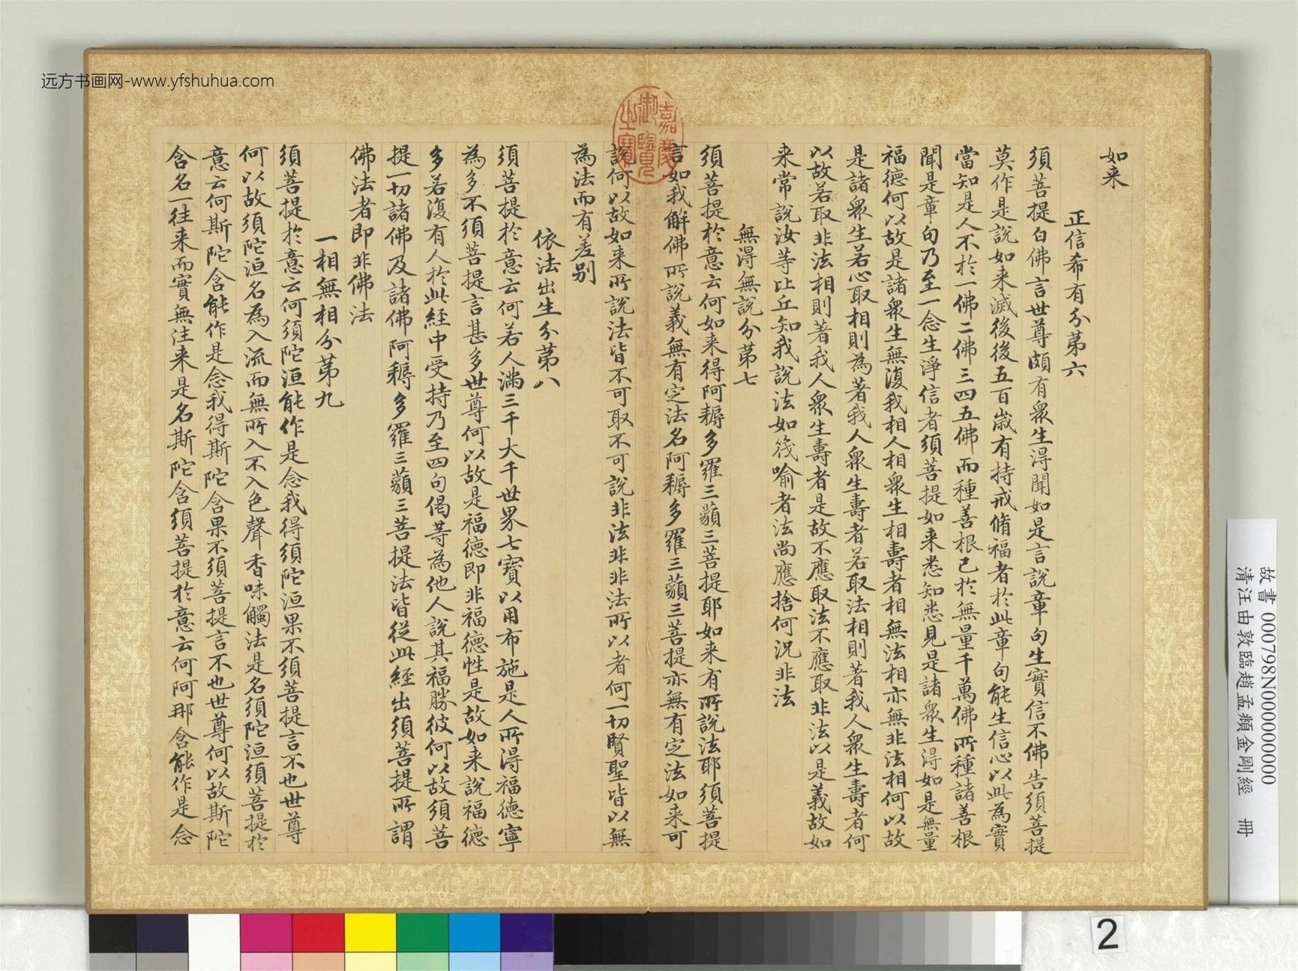 远方书画网-www.yfshuhua.com
嘉慶御覽之寶
如来
正信希有分第六
須菩提白佛言世尊頗有衆生得聞如是言說章句生實信不佛告須菩提
莫作是說如来滅後後五百歲有持戒脩福者於此章句能生信心以此為實
當知是人不於一佛二佛三四五佛而種善根已於無量千萬佛所種諸善根
聞是章句乃至一念生淨信者須菩提如来悉知悉見是諸衆生得如是無量
福德何以故是諸衆生無復我相人相衆生相壽者相無法相亦無非法相何以故
是諸衆生若心取相則為著我人衆生壽者若取法相則著我人衆生壽者何
以故若取非法相則著我人衆生壽者是故不應取法不應取非法以是義故如
来常說汝等比丘知我說法如筏喻者法尚應捨何況非法
無得無說分第七
須菩提於意云何如来得阿耨多羅三藐三菩提耶如来有所說法耶須菩提
言如我解佛所說義無有定法名阿耨多羅三藐三菩提亦無有定法如来可
說何以故如来所說法皆不可取不可說非法非非法所以者何一切賢聖皆以無
為法而有差別
依法出生分第八
須菩提於意云何若人滿三千大千世界七寶以用布施是人所得福德寧
為多不須菩提言甚多世尊何以故是福德即非福德性是故如来說福德
多若復有人於此經中受持乃至四句偈等為他人說其福勝彼何以故須菩
提一切諸佛及諸佛阿耨多羅三藐三菩提法皆從此經出須菩提所謂
佛法者即非佛法
一相無相分第九
須菩提於意云何須陀洹能作是念我得須陀洹果不須菩提言不也世尊
何以故須陀洹名為入流而無所入不入色聲香味觸法是名須陀洹須菩提於
意云何斯陀含能作是念我得斯陀含果不須菩提言不也世尊何以故斯陀
含名一往来而實無往来是名斯陀含須菩提於意云何阿那含能作是念
故書 000798N000000000
清汪由敦臨趙孟頫金剛經 冊
2